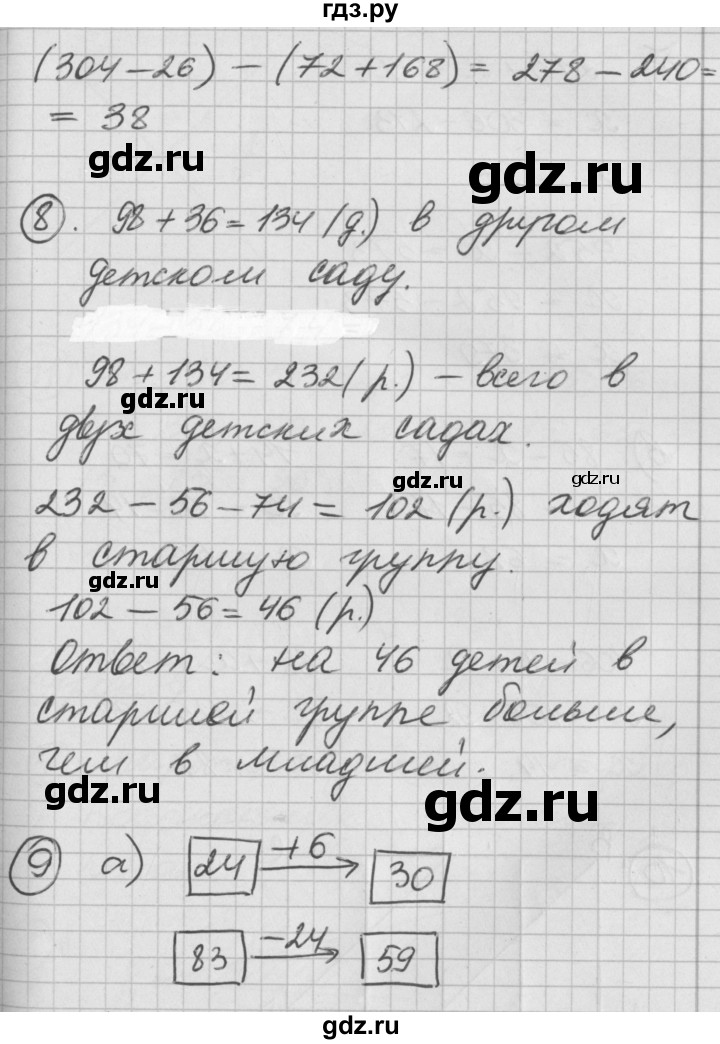 гдз.ру
(304-26) - (72+168) = 278-240=
= 38
gdz.ru
gdz.ru
8. 98+36=134 (д.) в другом
детском саду.
98+134=232(р.) - всего в
gdz.ru
двух детских садах.
gdz.ru
gdz.ru
232-56-74=102(р.) ходят
в старшую группу.
gdz.ru
102-56=46 (р.)
Ответ: на 46 детей в
старшей группе больше,
чем в младшей.
gdz.ru
gdz.ru
9 а) 24 +6 30
83 -24 59
gdz.ru